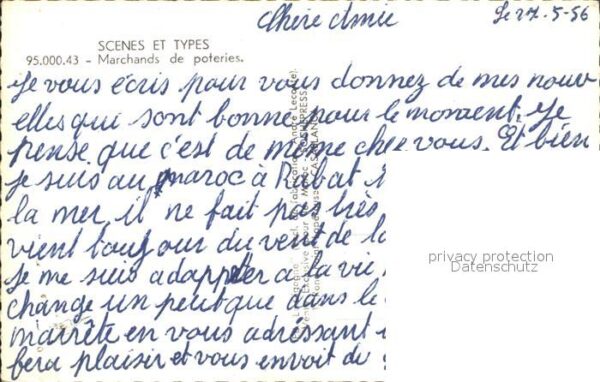 Chère Amie
le 27-5-56
SCENES ET TYPES
95.000.43 - Marchands de poteries.
Je vous écris pour vous donnez de mes nouv
elles qui sont bonne pour le moment. Je
pense que c'est de même chez vous. Et bien
je suis au maroc à Rabat
la mer il ne fait pas très
vient toujour du vent de la
je me suis adapter a la vie,
change un peut que dans le
marrête en vous adréssant
fera plaisir et vous envoit de
privacy protection
Datenschutz